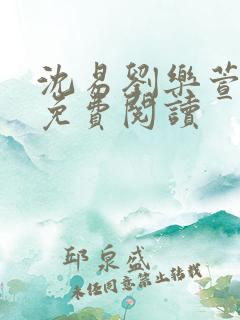 沈易劉樂萱
免費閱讀
邱泉盛
未經同意禁止轉載